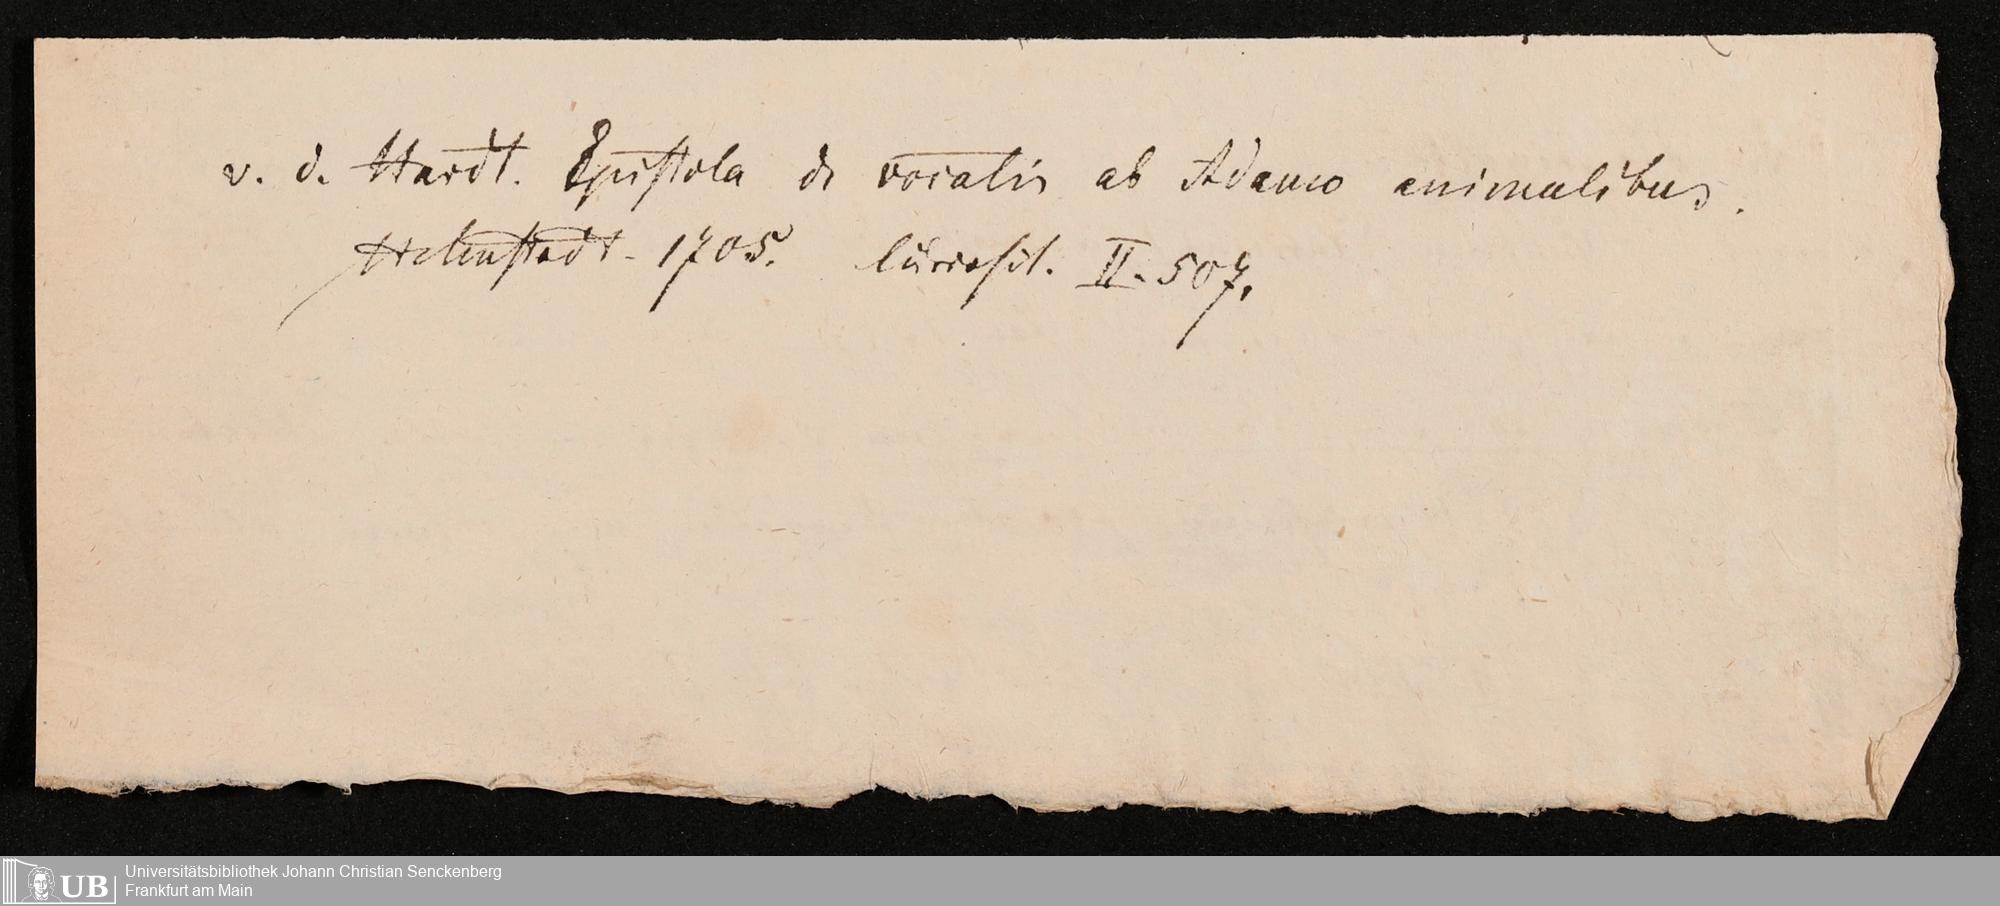 v. d. Hardt. Epistola de vocatis ab Adamo animalibus.
Helmstadt. 1705. Curiosit. II. 507.
Universitätsbibliothek Johann Christian Senckenberg
UB Frankfurt am Main